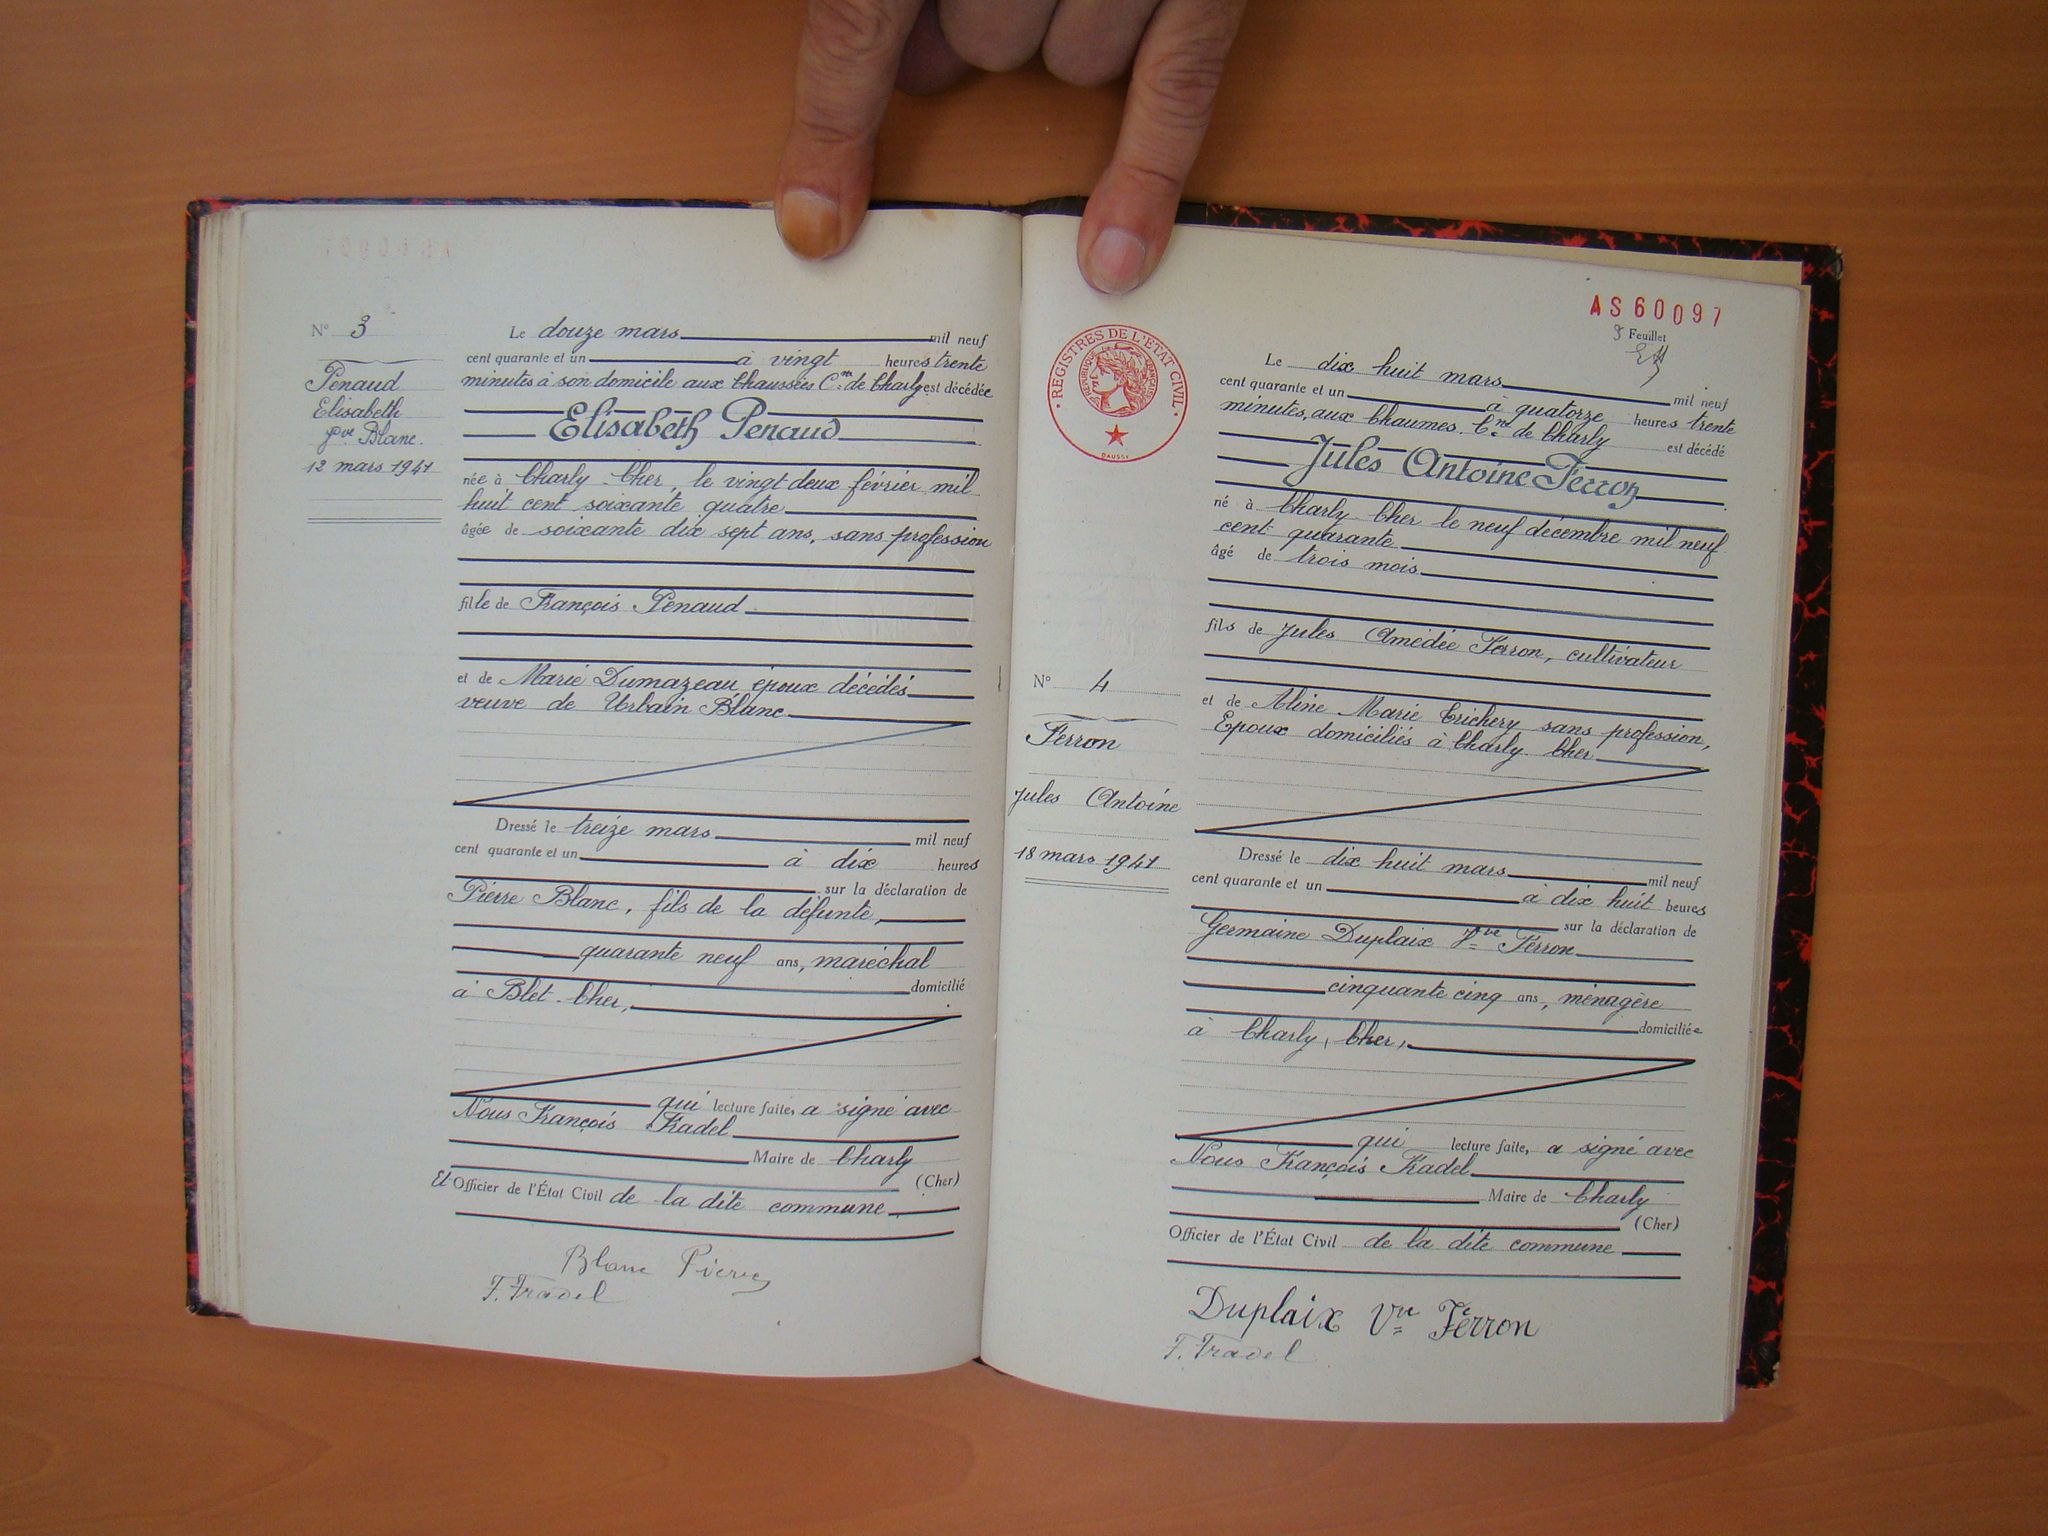 N° 3
Penaud
Elisabeth
Vve Blanc.
12 mars 1941
Le douze mars mil neuf
cent quarante et un à vingt heures trente
minutes à son domicile aux Chaussées Cne de Charly est décédée
Elisabeth Penaud
née à Charly Cher, le vingt deux février mil
huit cent soixante quatre
âgée de soixante dix sept ans, sans profession
fille de François Penaud
et de Marie Dumazeau époux décédés
veuve de Urbain Blanc
Dressé le treize mars mil neuf
cent quarante et un à dix heures
sur la déclaration de
Pierre Blanc, fils de la défunte,
quarante neuf ans, maréchal
domicilié
à Blet. Cher,
qui lecture faite, a signé avec
Nous François Fradel
Maire de Charly
(Cher)
Et Officier de l'État Civil de la dite commune
Blanc Pierre
F. Fradel
AS60097
Feuillet
REGISTRES DE L'ETAT CIVIL
REPUBLIQUE FRANÇAISE
DAUSSY
N° 4
Ferron
Jules Antoine
18 mars 1941
Le dix huit mars mil neuf
cent quarante et un à quatorze heures trente
minutes, aux Chaumes. Cne de Charly est décédé
Jules Antoine Ferron
né à Charly Cher le neuf décembre mil neuf
cent quarante
âgé de trois mois
fils de Jules Amédée Ferron, cultivateur
et de Aline Marie Trichery sans profession,
Epoux domiciliés à Charly Cher
Dressé le dix huit mars mil neuf
cent quarante et un à dix huit heures
sur la déclaration de
Germaine Duplaix Vve Ferron
cinquante cinq ans, ménagère
domiciliée
à Charly, Cher,
qui lecture faite, a signé avec
Nous François Fradel
Maire de Charly
(Cher)
Officier de l'État Civil de la dite commune
Duplaix Vve Ferron
F. Fradel